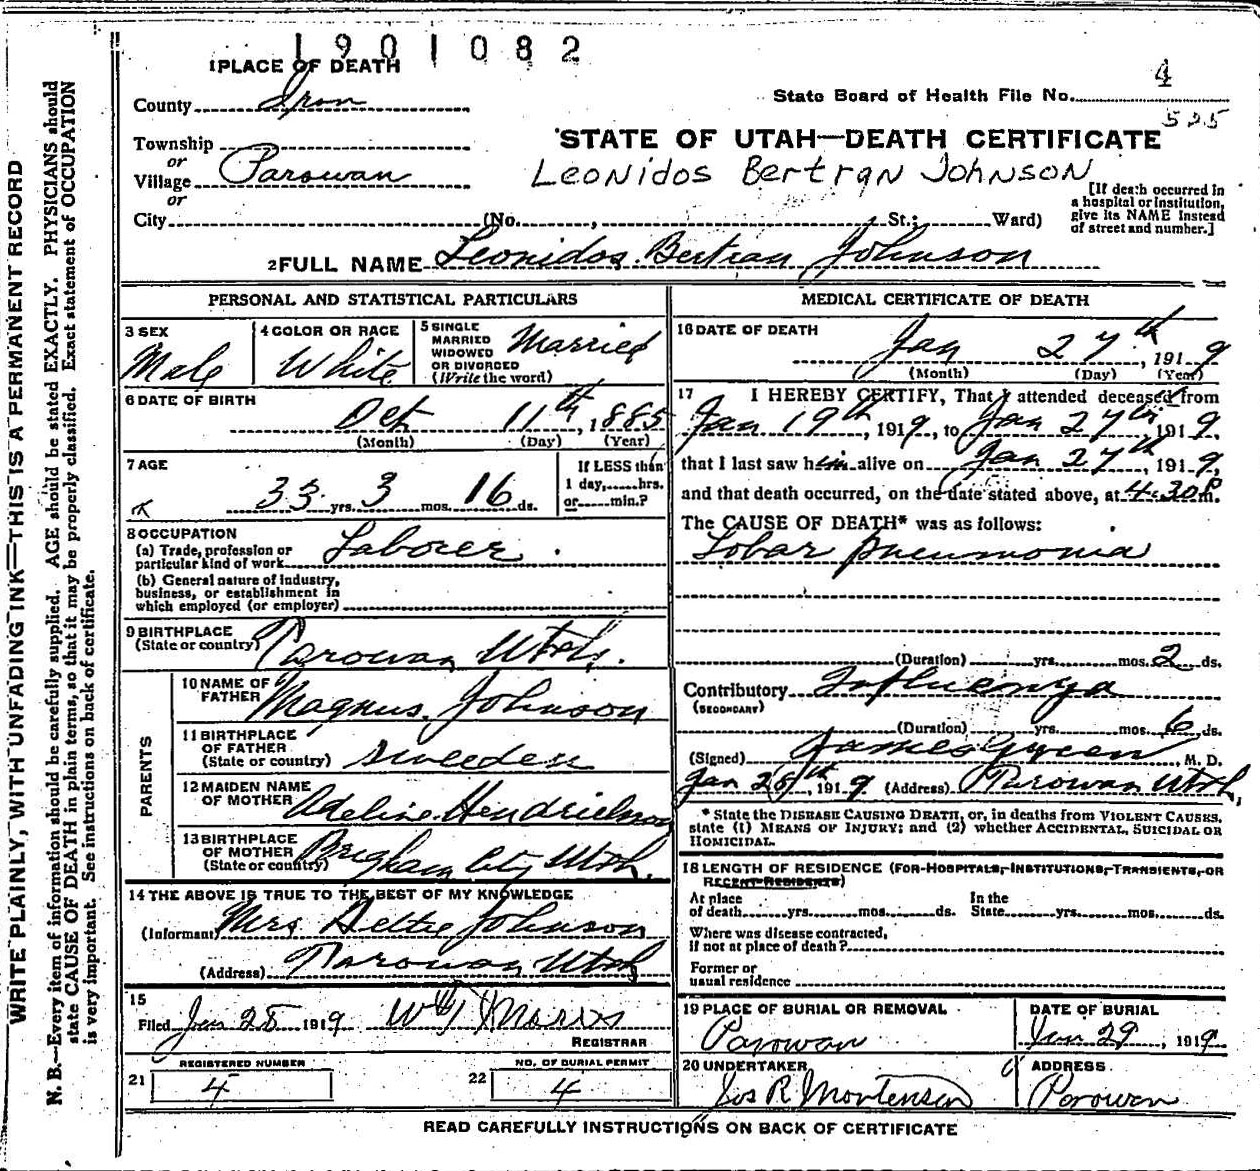 1901082
1 PLACE OF DEATH
County Iron
4
State Board of Health File No.
525
Township
or
Village Parowan
or
STATE OF UTAH—DEATH CERTIFICATE
Leonidos Bertran Johnson
[If death occurred in
a hospital or institution,
give its NAME instead
of street and number.]
City (No. , St.; Ward)
2 FULL NAME Leonidos Bertran Johnson
PERSONAL AND STATISTICAL PARTICULARS
3 SEX
Male
4 COLOR OR RACE
White
5 SINGLE
MARRIED
WIDOWED
OR DIVORCED
(Write the word)
Married
6 DATE OF BIRTH
Oct 11th, 1885
(Month) (Day) (Year)
7 AGE
33 yrs. 3 mos. 16 ds.
If LESS than
1 day, hrs.
or min.?
8 OCCUPATION
(a) Trade, profession or
particular kind of work Laborer
(b) General nature of industry,
business, or establishment in
which employed (or employer)
9 BIRTHPLACE
(State or country) Parowan Utah.
PARENTS
10 NAME OF
FATHER Magnus Johnson
11 BIRTHPLACE
OF FATHER
(State or country) Sweeden
12 MAIDEN NAME
OF MOTHER Adeline Hendrickson
13 BIRTHPLACE
OF MOTHER
(State or country) Brigham City Utah.
14 THE ABOVE IS TRUE TO THE BEST OF MY KNOWLEDGE
(Informant) Mrs Johnson
(Address) Parowan Utah
15
Filed Jan 28 1919 Morris
REGISTRAR
REGISTERED NUMBER
21 4
NO. OF BURIAL PERMIT
22 4
MEDICAL CERTIFICATE OF DEATH
16 DATE OF DEATH
Jan 27th, 1919
(Month) (Day) (Year)
17 I HEREBY CERTIFY, That I attended deceased from
Jan 19th, 1919, to Jan 27th 1919,
that I last saw him alive on Jan 27th, 1919,
and that death occurred, on the date stated above, at 4:30 P m.
The CAUSE OF DEATH* was as follows:
Lobar pneumonia
(Duration) yrs. mos. 2 ds.
Contributory Influenza
(SECONDARY)
(Duration) yrs. mos. 6 ds.
(Signed) James Green, M. D.
Jan 28th, 1919 (Address) Parowan Utah,
* State the DISEASE CAUSING DEATH, or, in deaths from VIOLENT CAUSES,
state (1) MEANS OF INJURY; and (2) whether ACCIDENTAL, SUICIDAL OR
HOMICIDAL.
18 LENGTH OF RESIDENCE (FOR HOSPITALS, INSTITUTIONS, TRANSIENTS, OR
RECENT RESIDENTS)
At place
of death yrs. mos. ds.
In the
State yrs. mos. ds.
Where was disease contracted,
if not at place of death?
Former or
usual residence
19 PLACE OF BURIAL OR REMOVAL
Parowan
DATE OF BURIAL
Jan 29, 1919
20 UNDERTAKER
Jos R Mortensen
ADDRESS
Parowan
READ CAREFULLY INSTRUCTIONS ON BACK OF CERTIFICATE
WRITE PLAINLY, WITH UNFADING INK—THIS IS A PERMANENT RECORD
N. B.—Every item of information should be carefully supplied. AGE should be stated EXACTLY. PHYSICIANS should
state CAUSE OF DEATH in plain terms, so that it may be properly classified. Exact statement of OCCUPATION
is very important. See instructions on back of certificate.